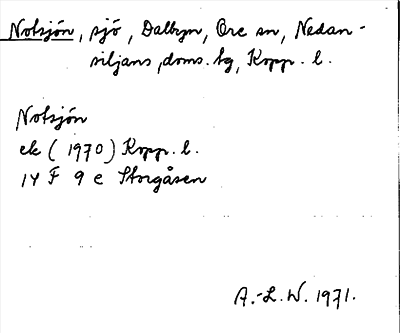 Notsjön, sjö, Dalbyn, Ore sn, Nedan-
siljans doms. tg, Kopp. l.
Notsjön
ek (1970) Kopp. l.
14 F 9 e Storgåsen
A.-L. W. 1971.